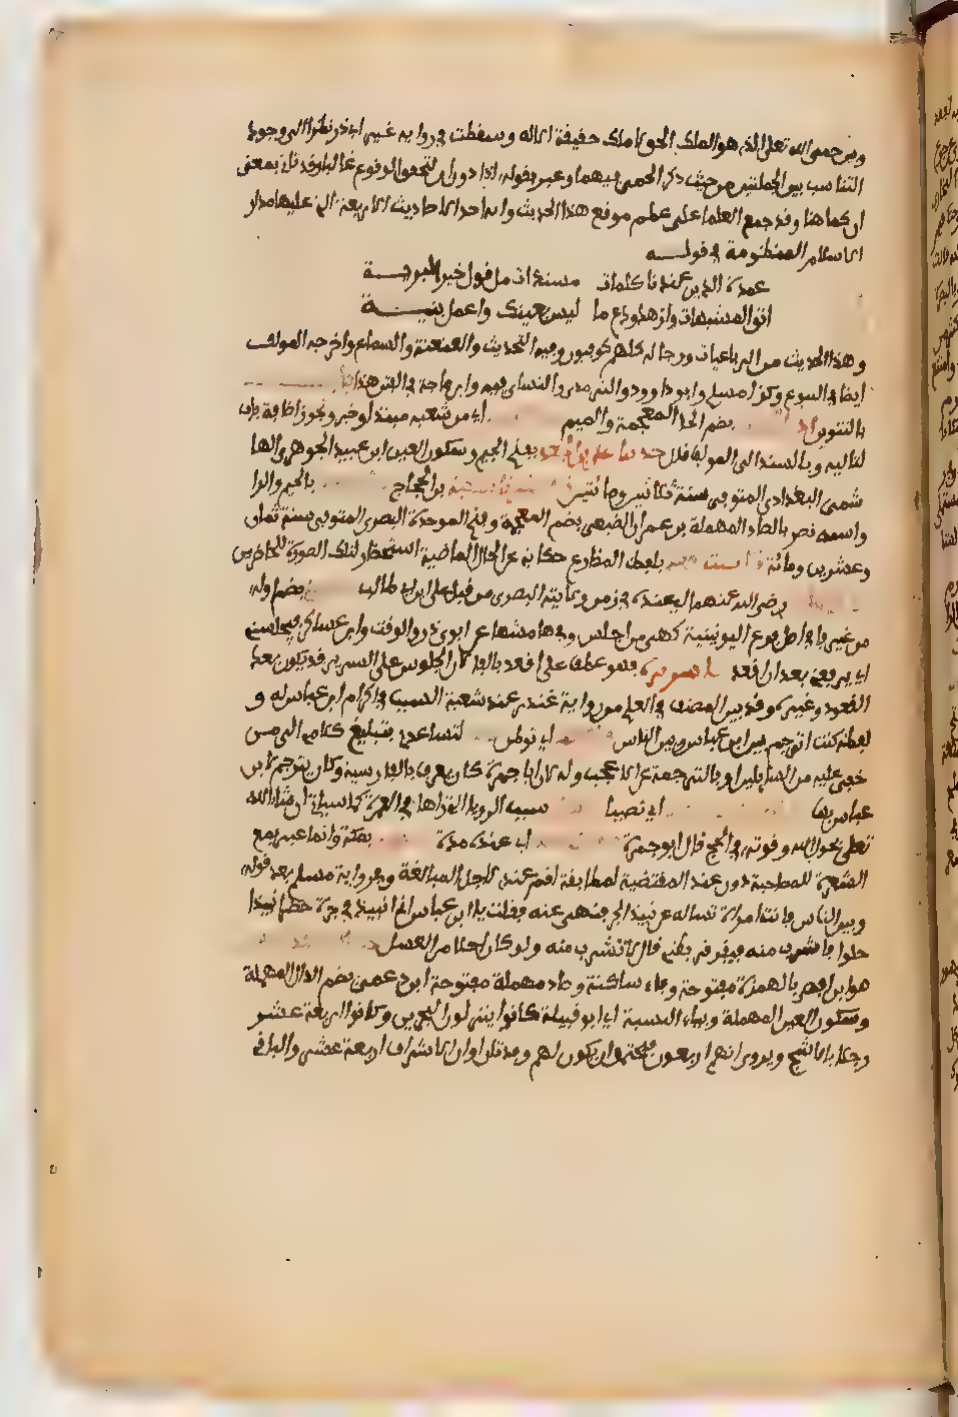 وبين حمى الله تعلى الذي هو الملك الحق لا ملك حقيقة الا له وسقطت في رواية غير ابي ذر نظرا الى وجود
التناسب بين الجملتين من حيث ذكر الحمى فيهما وعبر بقوله اذا دون ان لتحقق الوقوع غالبا وقد تاتي بمعنى
ان كما هنا وقد جمع العلما على عظم موقع هذا الحديث وانه احد الاحاديث الاربعة التي عليها مدار
الاسلام المنظومة في قوله
عمدة الدين عندنا كلمات مسندات من قول خير البرية
اتق المشبهات وازهد ودع ما ليس يعينك واعمل بنية
وهذا الحديث من الرباعيات ورجاله كلهم كوفيون وفيه التحديث والعنعنة والسماع واخرجه المولف
ايضا في البيوع وكذا مسلم وابو داوود والترمدي والنساي فيه وابن ماجة في الفتن هذا
بالتنوين بضم الخا المعجمة والميم اي من شعبه مبتدا وخبر ويجوز اظافة باب
لتاليه وبالسند الى المولف قال حدثنا علي بن الجعد بفتح الجيم وسكون العين ابن عبيد الجوهري الها
شمي البغدادي المتوفى سنة ثلاثين ومائتين شعبة بن الحجاج بالجيم والرا
واسمه نصر بالصاد المهملة بن عمران الضبعي بضم المعجمة وفتح الموحدة البصري المتوفى سنة ثمان
وعشرين ومائة بلفظ المظارع حكاية عن الحال الماضية استحظار لتلك الصورة للحاضرين
رضي الله عنهما اي عنده في زمن ولايته البصرى من قبل علي ابن ابي طالب بضم اوله
من غير فا في اصل فرع اليونينية كهى من اجلس وفي هامشها عن ابوي ذر والوقت وابن عساكر فيجلسني
اي يرفعني بعد ان اقعد سريره فهو عطف على اقعد بالفا لان الجلوس على السرير قد يكون بعد
القعود وغيره وقد بين المصنف في العلم من رواية غندر عند شعبة السبب في اكرام ابن عباس له و
لفظه كنت اترجم بين ابن عباس وبين الناس اي توطن لتساعدني بتبليغ كلامي الى من
خفي عليه من السايلين او بالترجمة عن الاعجمي وله لان ابا جمرة كان يعرف بالفارسية وكان يترجم لابن
عباس بها اي نصيبا سببه الرويا التي راها في العمرة كما سياتي ان شا الله
تعلى بحول الله وقوته في الحج قال ابو جمرة اي عنده مدة بمكة وانما عبر بمع
المشعرة للمصاحبة دون عند المقتضية لمطابقة اقم عندي لاجل المبالغة وفي رواية مسلم بعد قوله
وبين الناس فاتت امراة تساله عن نبيذ الجر فنهى عنه فقلت يا ابن عباس اني انبذ في جرة خضرا نبيذا
حلوا فاشرب منه فيقرقر بطني قال لا تشرب منه ولو كان احلا من العسل
هو ابن افصى بالهمزة مفتوحة وفاء ساكنة وصاد مهملة مفتوحة ابن دعمي بضم الدال المهملة
وسكون العين المهملة وبياء النسبة اي ابو قبيلة كانوا ينزلون البحرين وكانوا اربعة عشر
رجلا بالاشج ويروى انهم اربعون فيحتمل ان يكون لهم وفدتان او ان الاشراف اربعة عشر والباقي